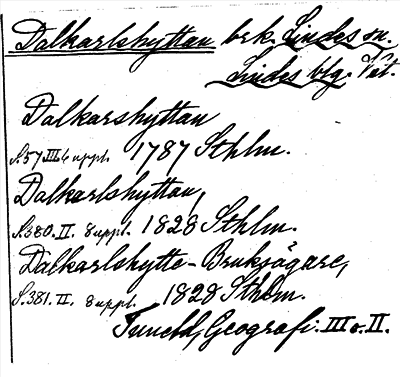 Dalkarlshyttan brk. Lindes sn.
Lindes blg. Vstm.
Dalkarshyttan
S.57 III 6 uppl. 1787 Sthlm.
Dalkarlshyttan,
S.380. II. 8 uppl. 1828 Sthlm.
Dalkarlshytte-Bruksägare,
S.381. II. 8 uppl. 1828 Sthlm.
Tuneld, Geografi. III o. II.